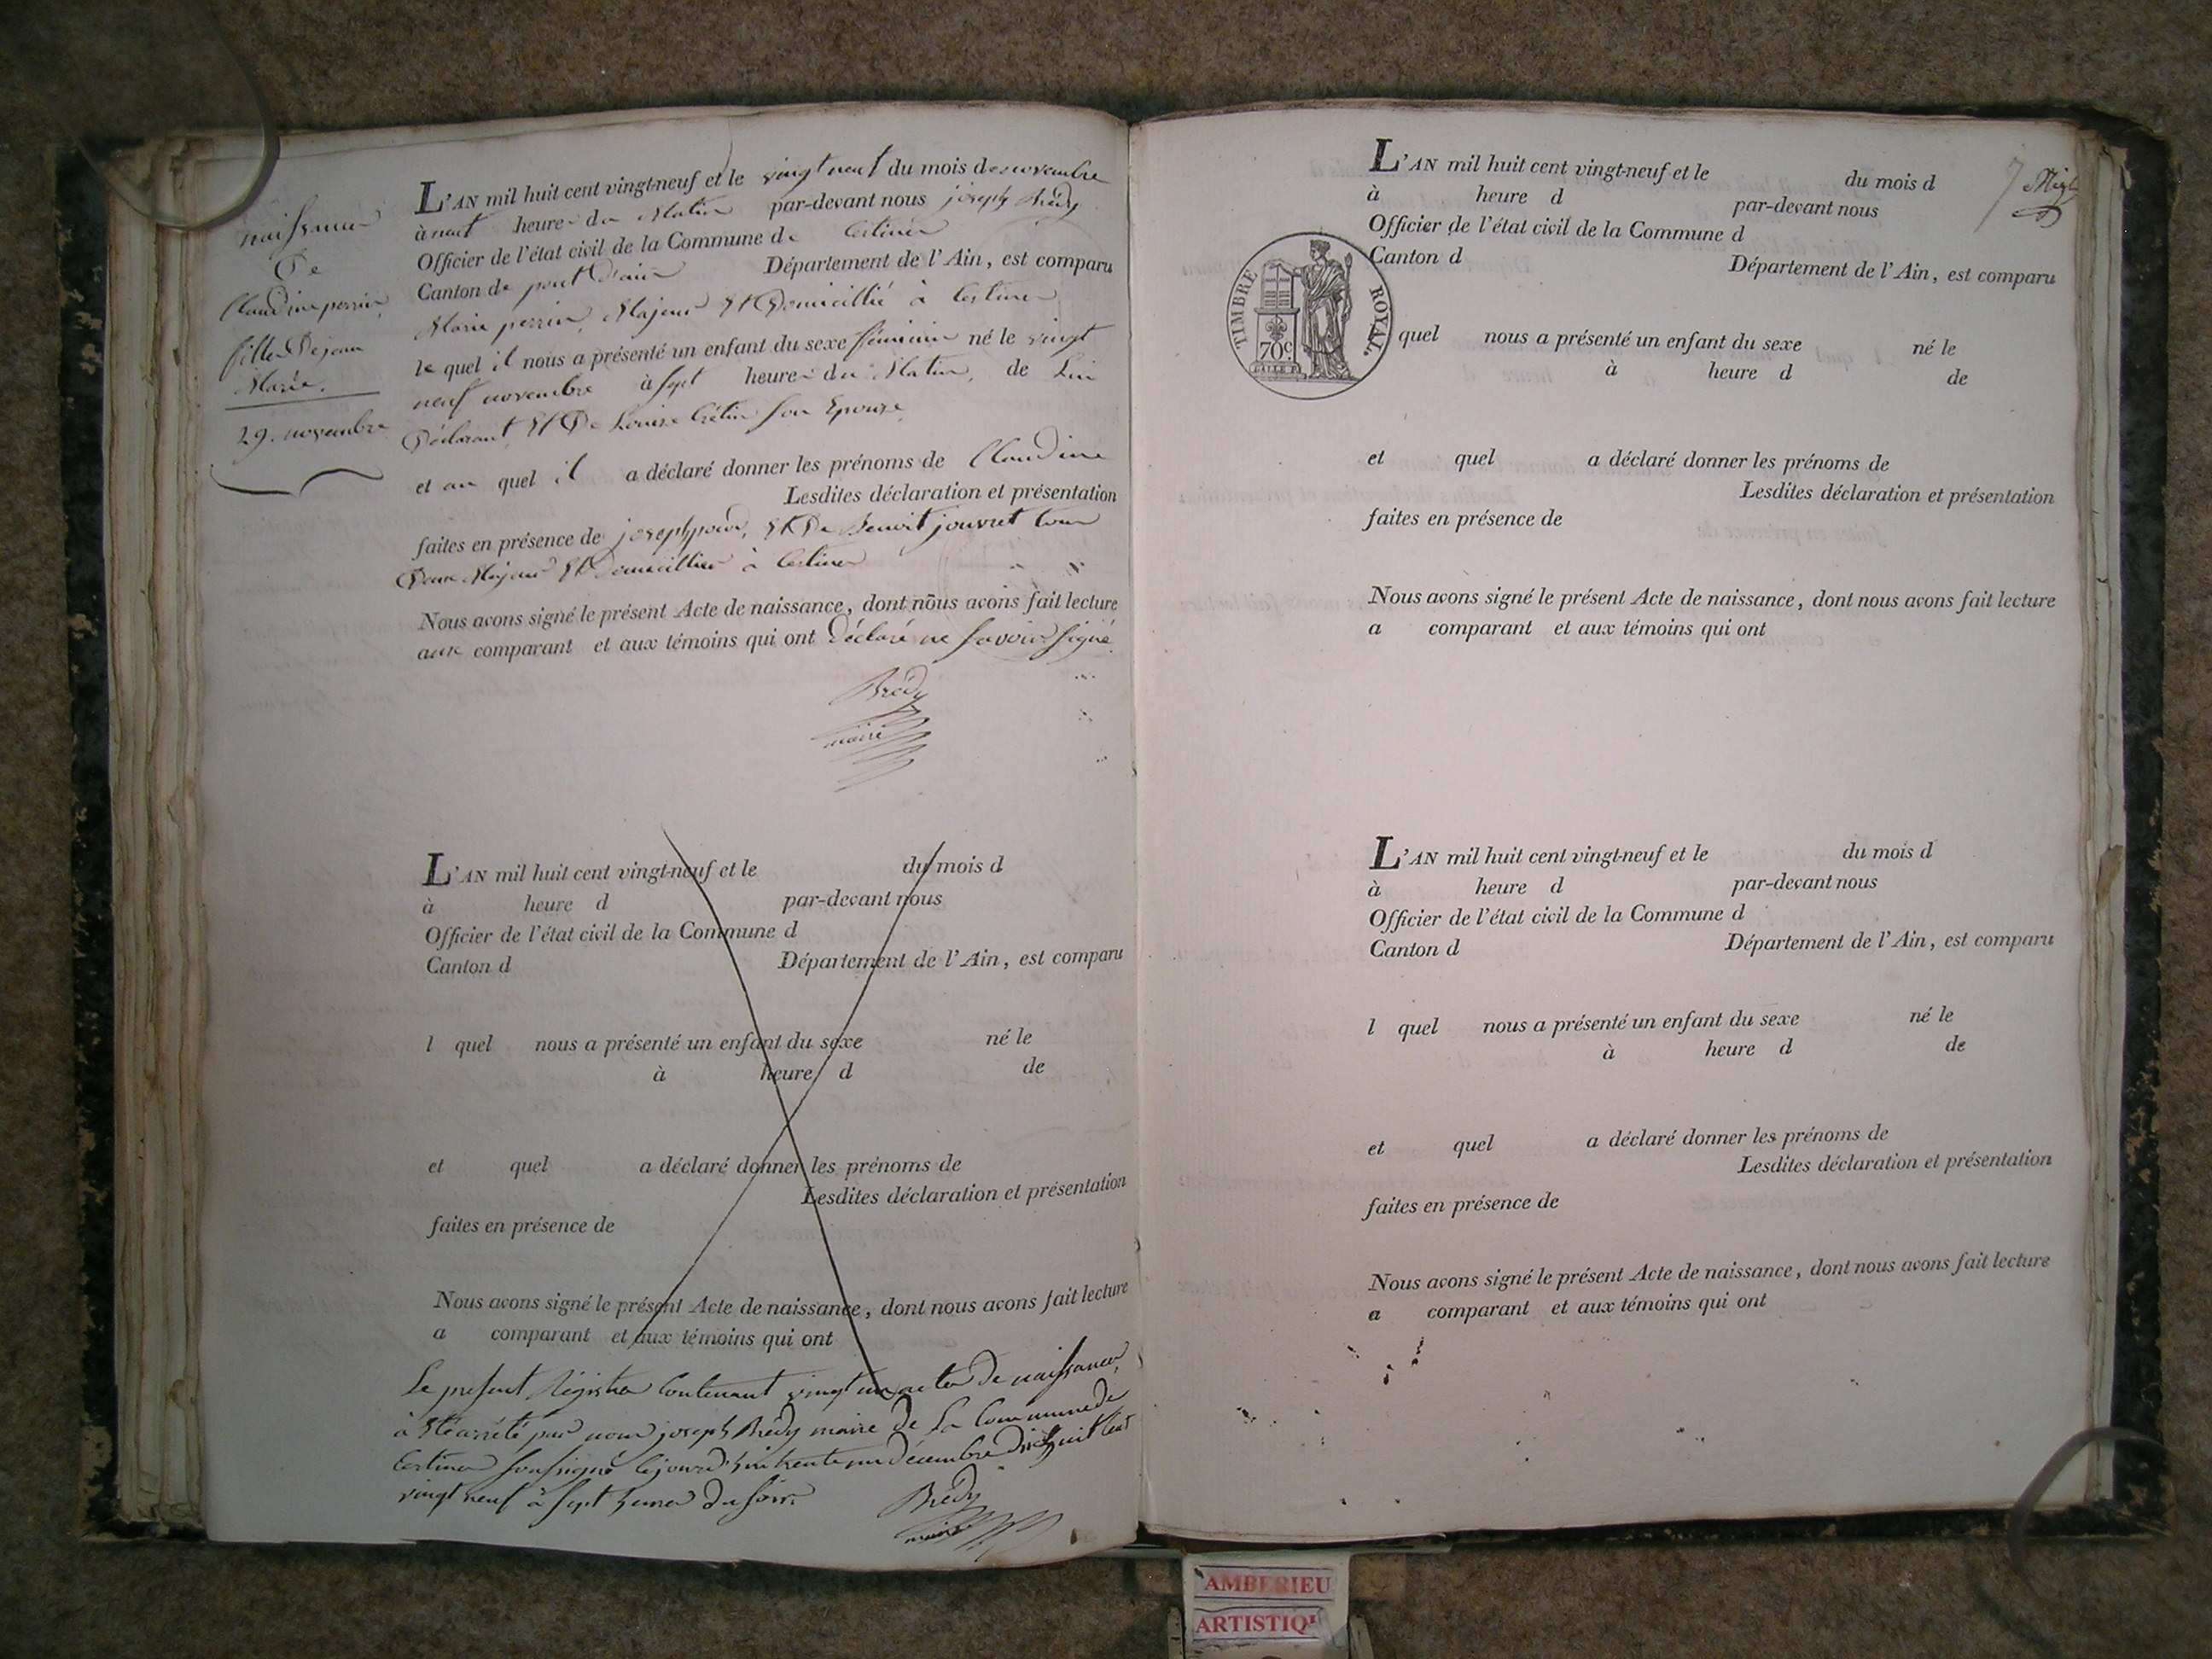 naissance
De
Claudine perrin
fille De jean
Marie.
29. novembre
L'AN mil huit cent vingt-neuf et le vingt neuf du mois de novembre
à neuf heures du Matin par-devant nous joseph Brédy
Officier de l'état civil de la Commune de Certines
Canton de pont D'ain Département de l'Ain, est comparu
Marie perrin, Majeur Et Domicillié à Certines
le quel il nous a présenté un enfant du sexe féminin né le vingt
neuf novembre à sept heures du Matin, de Lui
Déclarant Et De Louise Crétin son Epouse
et au quel il a déclaré donner les prénoms de Claudine
Lesdites déclaration et présentation
faites en présence de joseph Et De Benoit jouvret tous
Deux Majeurs Et Domicilliés à Certines
Nous avons signé le présent Acte de naissance, dont nous avons fait lecture
aux comparant et aux témoins qui ont Déclaré ne savoir signé.
Brédy
maire
L'AN mil huit cent vingt-neuf et le du mois d
à heure d par-devant nous
Officier de l'état civil de la Commune d
Canton d Département de l'Ain, est comparu
l quel nous a présenté un enfant du sexe né le
à heure d de
et quel a déclaré donner les prénoms de
Lesdites déclaration et présentation
faites en présence de
Nous avons signé le présent Acte de naissance, dont nous avons fait lecture
a comparant et aux témoins qui ont
Le present Régistre Contenant vingt un actes De naissances,
à Eté arrêté par nous joseph Brédy maire De La Commune de
Certines soussigné Cejourd'hui trente un décembre Dix huit Cent
vingt neuf à sept heures Du soir.
Brédy
maire
7
L'AN mil huit cent vingt-neuf et le du mois d
à heure d par-devant nous
Officier de l'état civil de la Commune d
Canton d Département de l'Ain, est comparu
TIMBRE ROYAL.
70c
quel nous a présenté un enfant du sexe né le
à heure d de
et quel a déclaré donner les prénoms de
Lesdites déclaration et présentation
faites en présence de
Nous avons signé le présent Acte de naissance, dont nous avons fait lecture
a comparant et aux témoins qui ont
L'AN mil huit cent vingt-neuf et le du mois d
à heure d par-devant nous
Officier de l'état civil de la Commune d
Canton d Département de l'Ain, est comparu
l quel nous a présenté un enfant du sexe né le
à heure d de
et quel a déclaré donner les prénoms de
Lesdites déclaration et présentation
faites en présence de
Nous avons signé le présent Acte de naissance, dont nous avons fait lecture
a comparant et aux témoins qui ont
AMBERIEU
ARTISTIQU